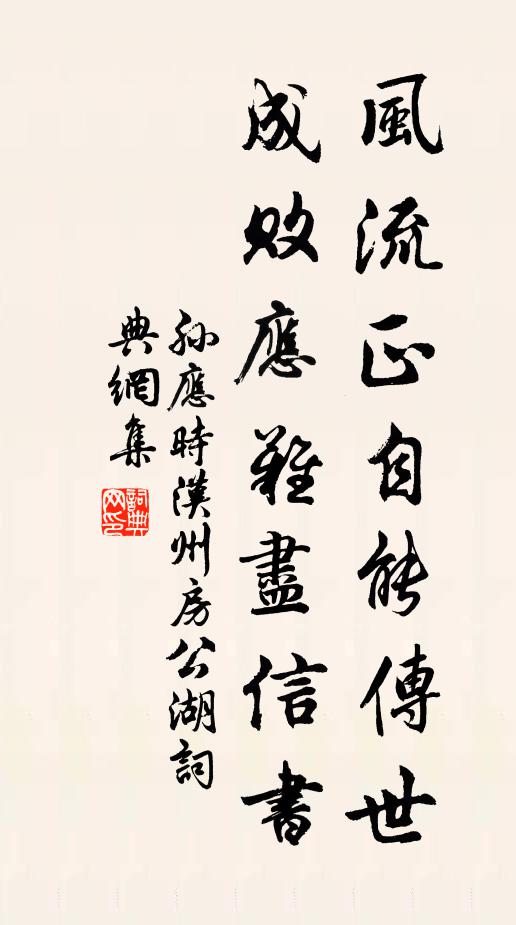 風流正自能傳世
成敗應難盡信書
孫應時漢州房公湖詞
典網集
詞典
网印